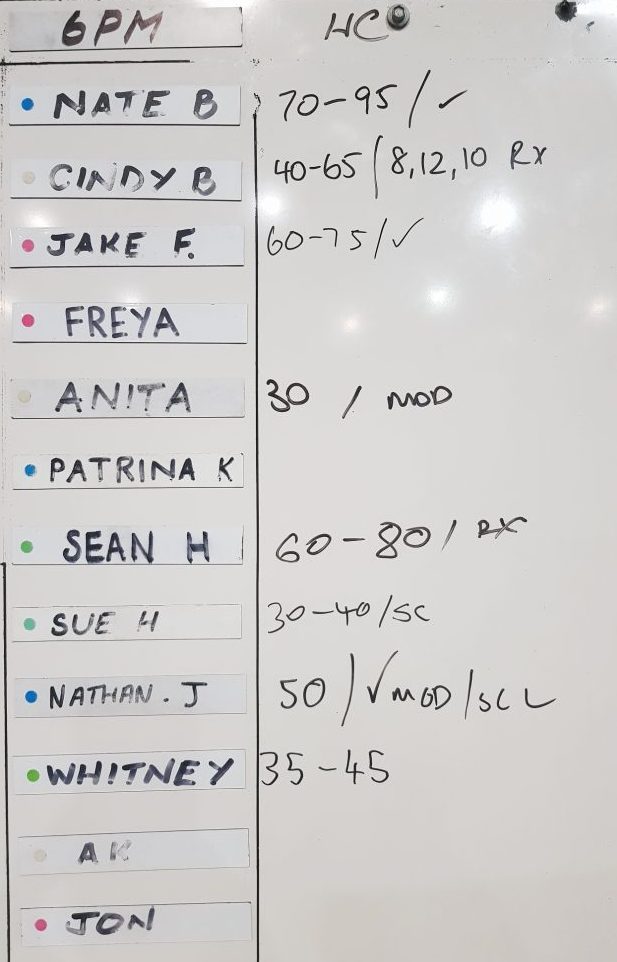 6PM HC
NATE B 70-95/✓
CINDY B 40-65/8,12,10 RX
JAKE F. 60-75/✓
FREYA
ANITA 30 / MOD
PATRINA K
SEAN H 60-80/ RX
SUE H 30-40/SC
NATHAN. J 50/✓MOD/SC L
WHITNEY 35-45
AK
JON